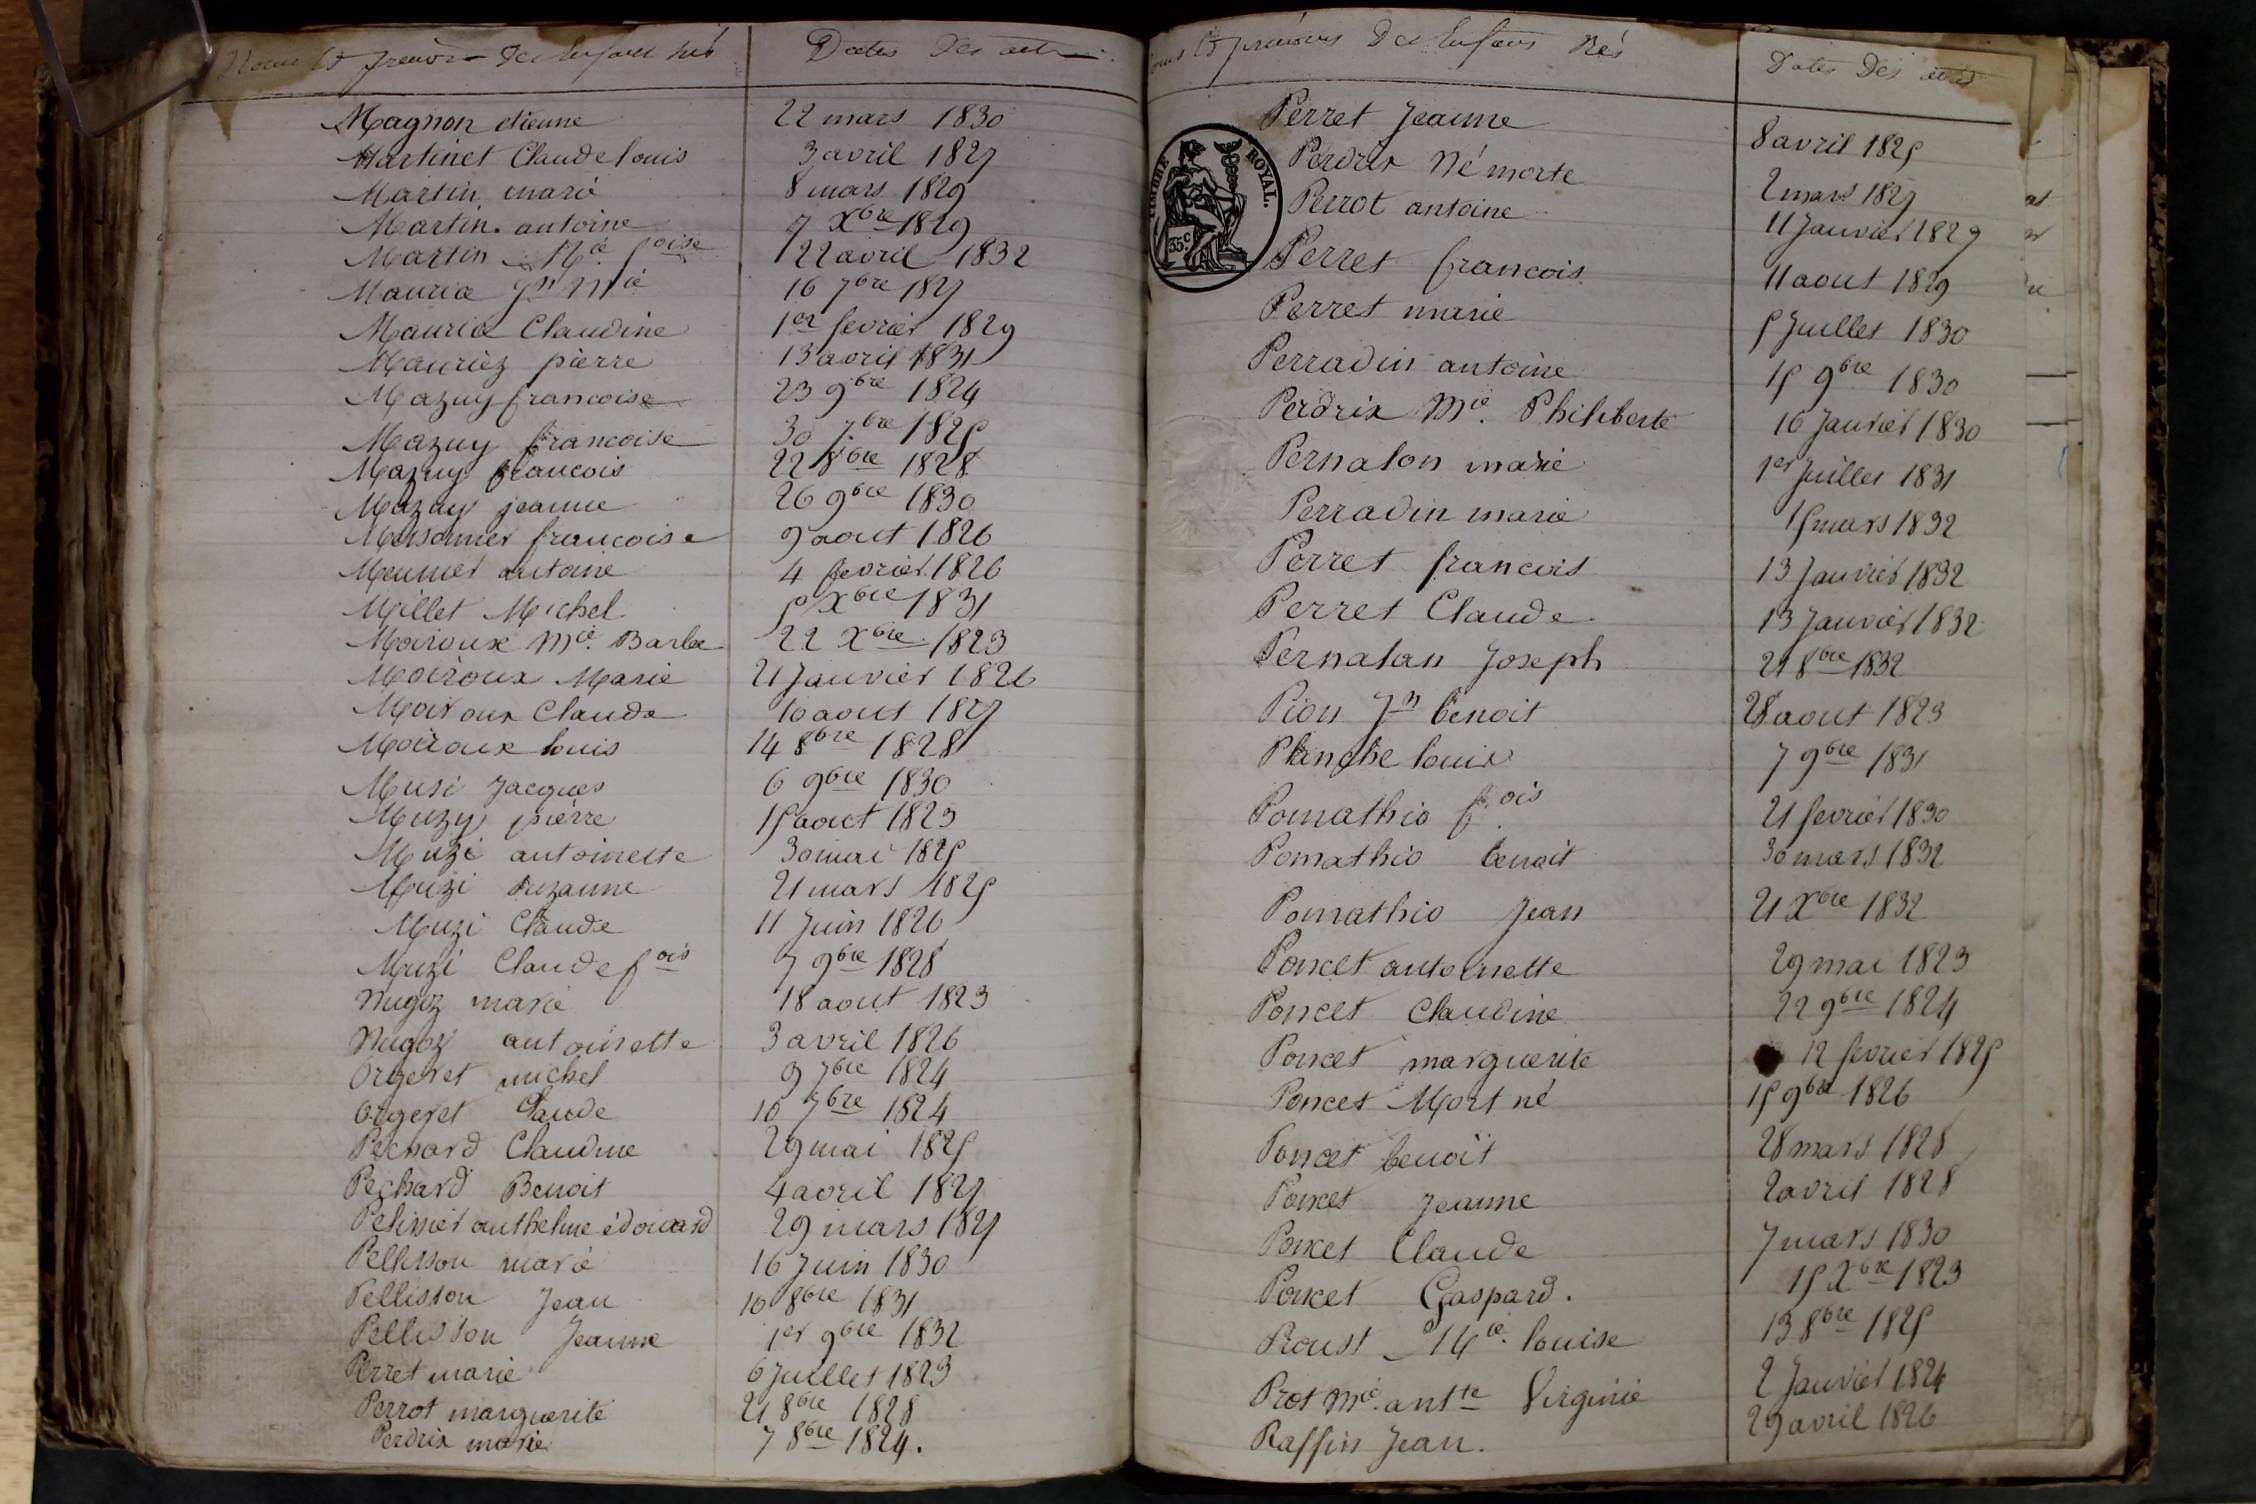 Noms et prénoms des Enfans nés Dates des actes
Magnon etienne 22 mars 1830
Martinet Claude louis 3 avril 1827
Martin marie 8 mars 1829
Martin antoine 7 Xbre 1829
Martin Mie foise 22 avril 1832
Maurice Jn Mie 16 7bre 1827
Maurice Claudine 1er fevrier 1829
Mauriez pierre 13 avril 1831
Mazuy francoise 23 9bre 1824
Mazuy francoise 30 7bre 1825
Mazuy francois 22 8bre 1828
Mazuy jeanne 26 9bre 1830
francoise 9 aout 1826
Meunier antoine 4 fevrier 1826
Millet Michel 5 Xbre 1831
Moiroux Mie Barbe 22 Xbre 1823
Moiroux Marie 21 Janvier 1826
Moiroux Claude 10 aout 1827
Moiroux louis 14 8bre 1828
Musi Jacques 6 9bre 1830
Muzy pierre 15 aout 1823
Muzi antoinette 30 mai 1825
Muzi suzanne 21 mars 1825
Muzi Claude 11 Juin 1826
Muzi Claude fois 7 9bre 1828
Nugoz marie 18 aout 1823
Nugoz antoinette 3 avril 1826
Orgeret michel 9 7bre 1824
Orgeret Claude 10 7bre 1824
Pechard Claudine 29 mai 1825
Pechard Benoit 4 avril 1827
Pelissier anthelme édouard 29 mars 1827
Pellisson marie 16 Juin 1830
Pellisson Jean 10 8bre 1831
Pellisson Jeanne 1er 9bre 1832
Perret marie 6 Juillet 1823
Perrot marguerite 21 8bre 1828
Perdrix marie 7 8bre 1824.
Noms et prénoms Des Enfans Nés Dates Des actes
TIMBRE ROYAL.
35c
Perret Jeanne 8 avril 1825
Perdrix Né morte 2 mars 1827
Perrot antoine 11 Janvier 1829
Perret francois 11 aout 1829
Perret marie 5 Juillet 1830
Perradin antoine 15 9bre 1830
Perdrix Mie Philiberte 16 Janvier 1830
Pernalon marie 1er Juillet 1831
Perradin marie 15 mars 1832
Perret francois 13 Janvier 1832
Perret Claude 13 Janvier 1832
Pernalan Joseph 21 8bre 1832
Pion Jn benoit 28 aout 1823
Planche louis 7 9bre 1831
Pomathio fois 21 fevrier 1830
Pomathio benoit 30 mars 1832
Pomathio Jean 21 Xbre 1832
Poncet antoinette 29 mai 1823
Poncet Claudine 22 9bre 1824
Poncet marguerite 12 fevrier 1825
Poncet Mort né 15 9bre 1826
Poncet benoit 28 mars 1828
Poncet Jeanne 2 avril 1828
Poncet Claude 7 mars 1830
Poncet Gaspard. 15 Xbre 1823
Proust Mie louise 13 8bre 1825
Prost Mie antte Virginie 2 Janvier 1824
Raffin Jean. 29 avril 1826